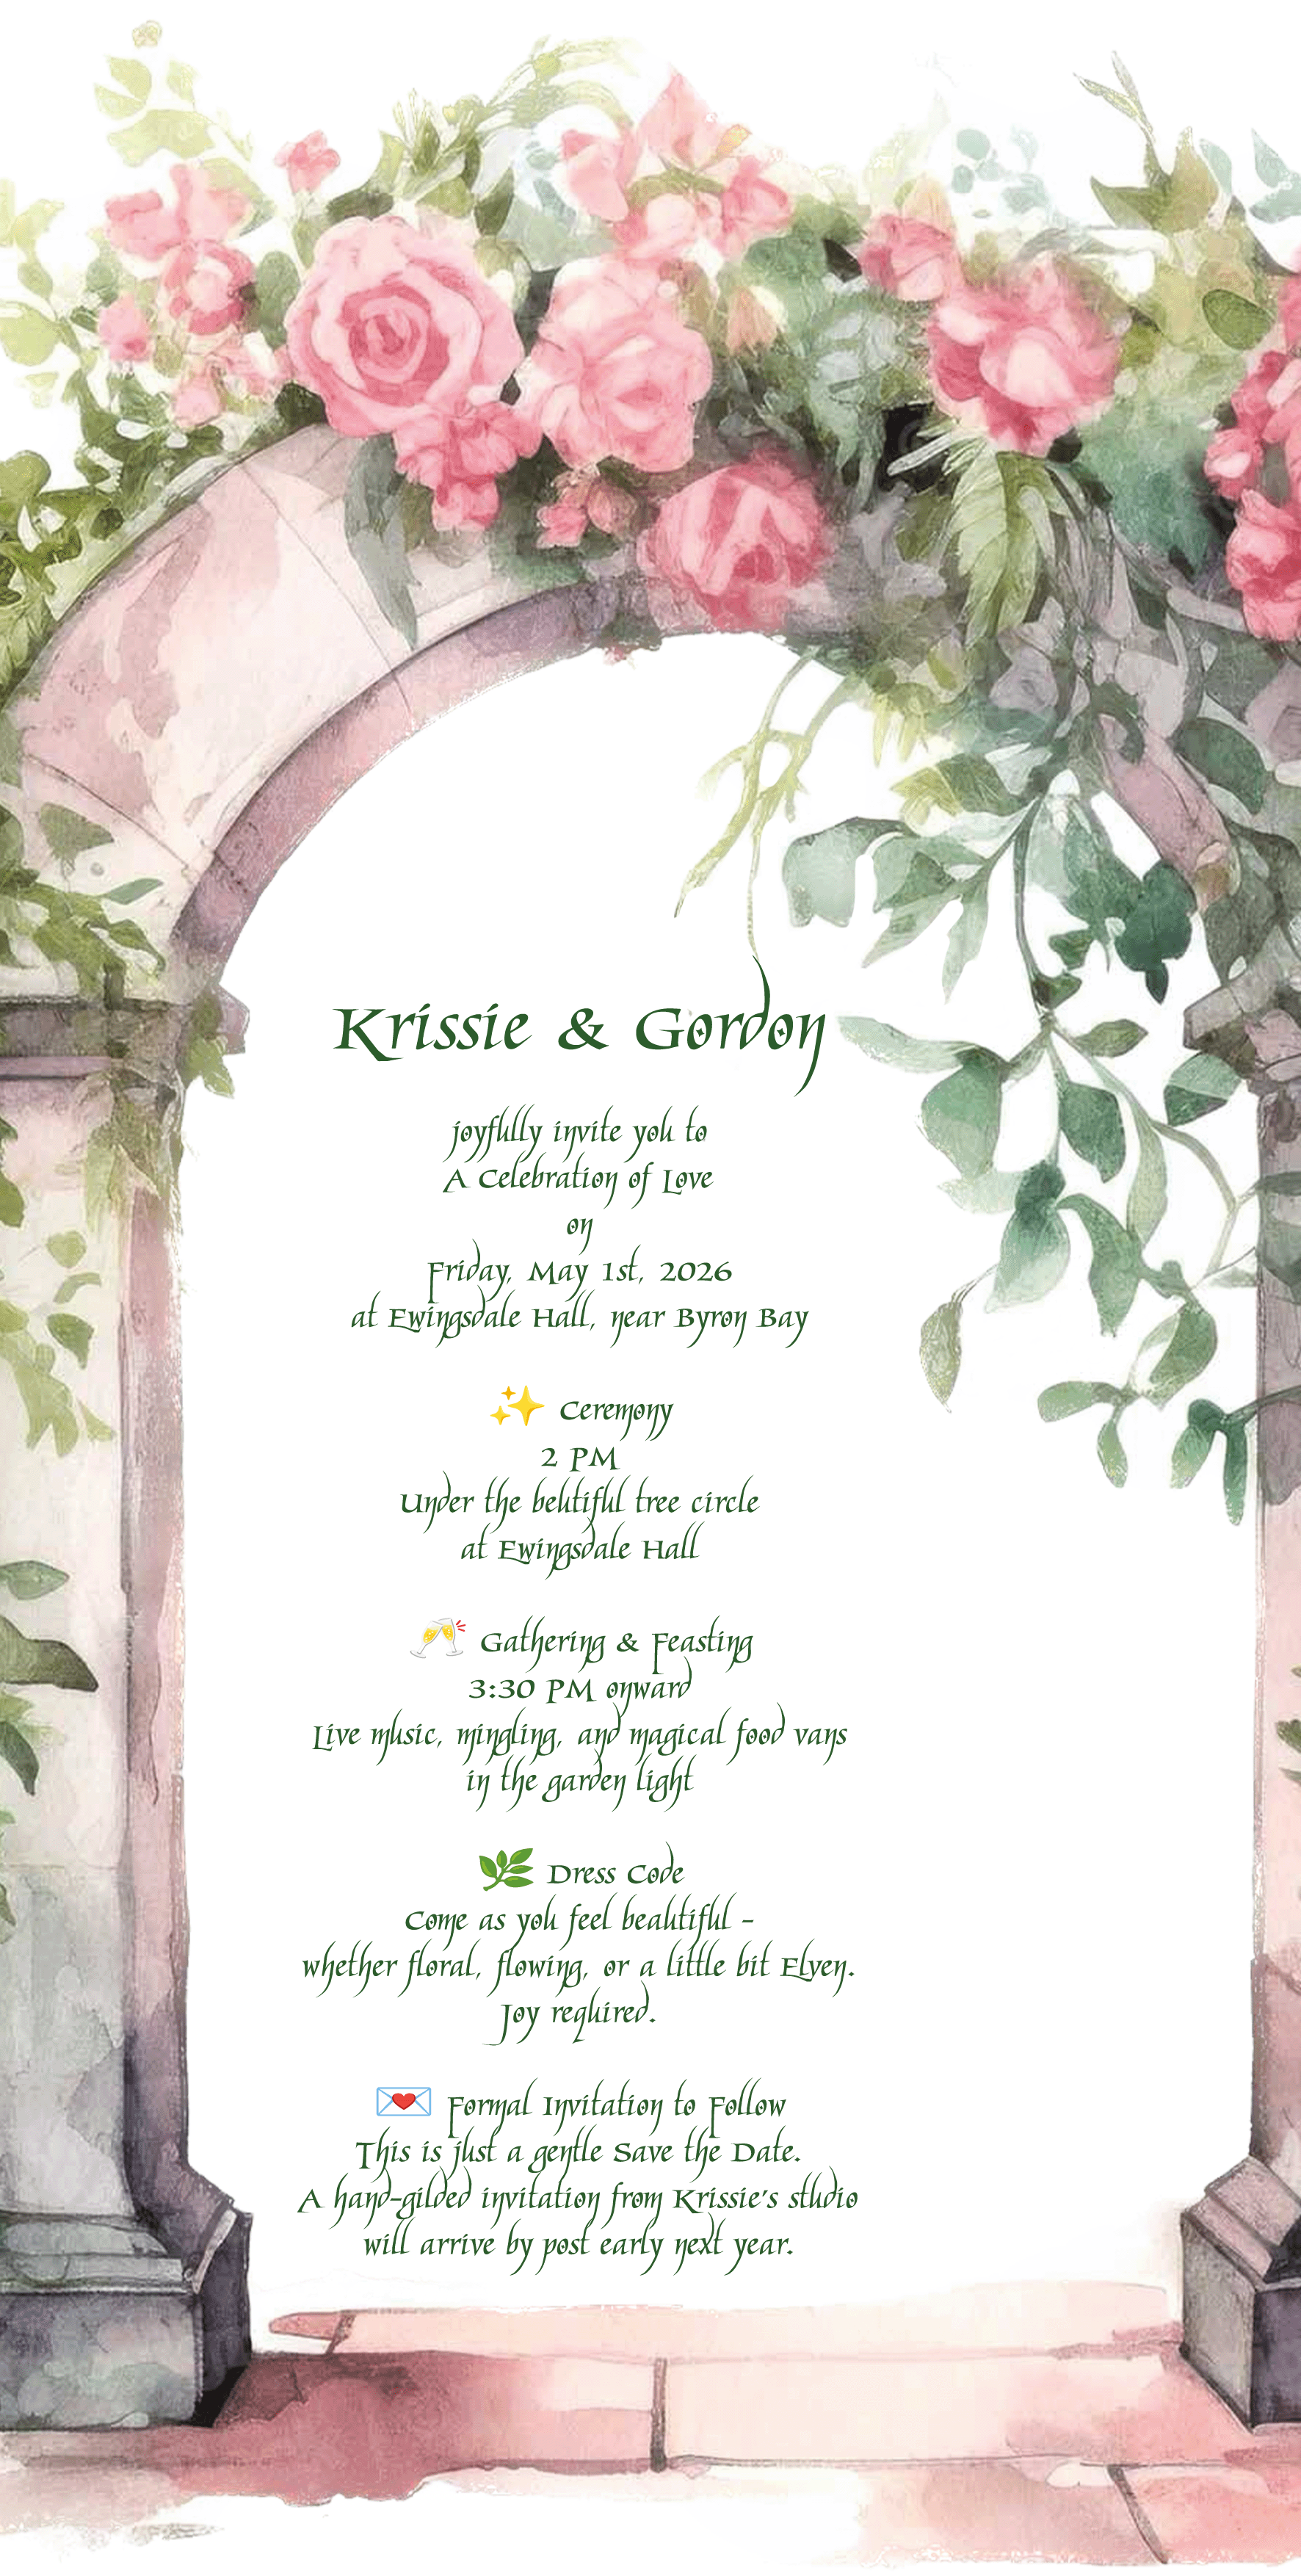 Krissie & Gordon
joyfully invite you to
A Celebration of Love
on
Friday, May 1st, 2026
at Ewingsdale Hall, near Byron Bay
✨ Ceremony
2 PM
Under the beutiful tree circle
at Ewingsdale Hall
🥂 Gathering & Feasting
3:30 PM onward
Live music, mingling, and magical food vans
in the garden light
🌿 Dress Code
Come as you feel beautiful -
whether floral, flowing, or a little bit Elven.
Joy required.
💌 Formal Invitation to Follow
This is just a gentle Save the Date.
A hand-gilded invitation from Krissie's studio
will arrive by post early next year.